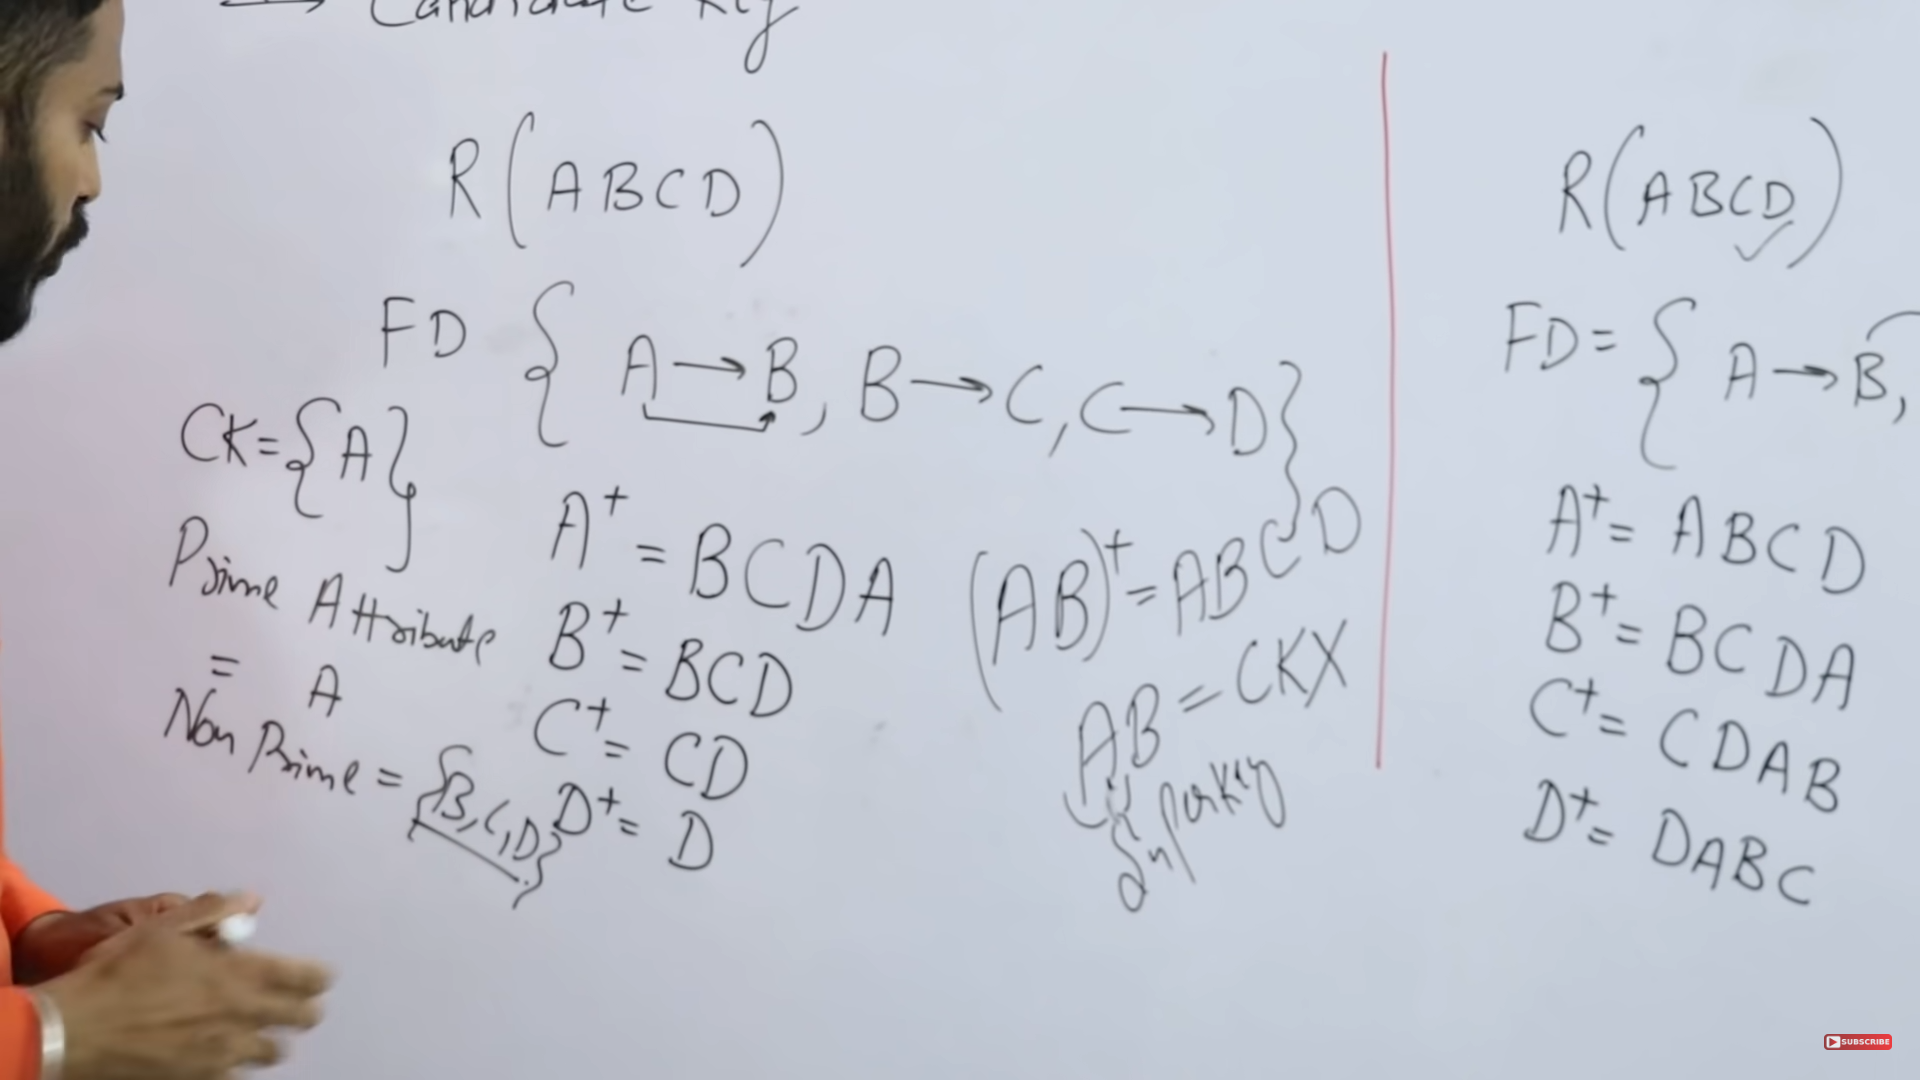 → Candidate Key
R(ABCD)
FD { A → B, B → C, C → D}
CK = {A}
Prime Attribute
= A
Non Prime = {B, C, D}
A⁺ = BCDA
B⁺ = BCD
C⁺ = CD
D⁺ = D
(AB)⁺ = ABCD
AB = CKX
R(ABCD)
FD = { A → B,
A⁺ = ABCD
B⁺ = BCDA
C⁺ = CDAB
D⁺ = DABC
SUBSCRIBE